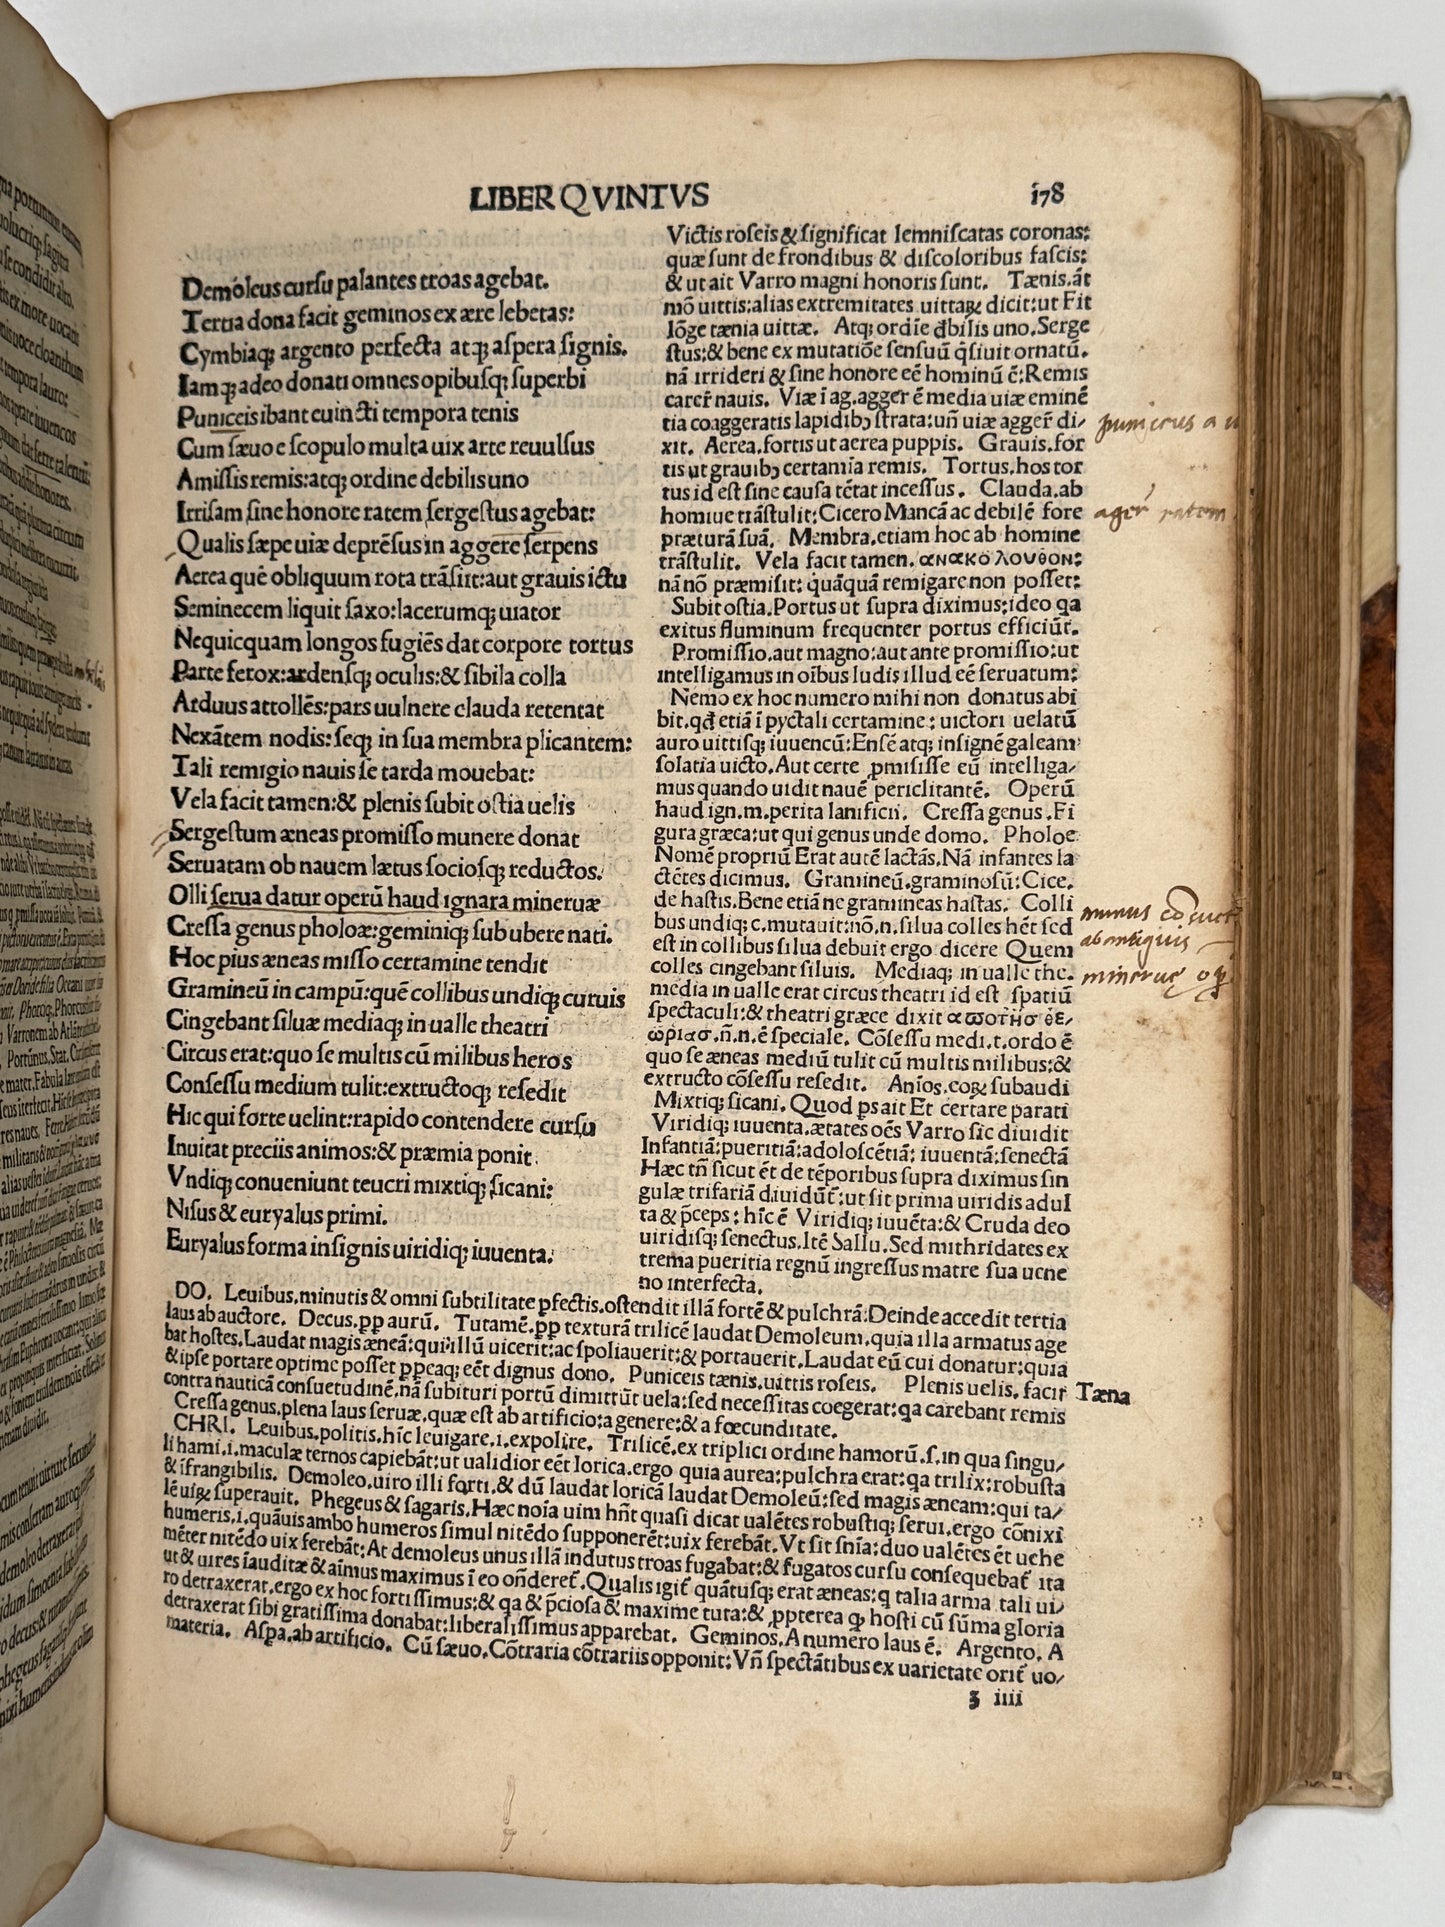 LIBER QVINTVS
i78
Demoleus cursu palantes troas agebat.
Tertia dona facit geminos ex ære lebetas:
Cymbiaq; argento perfecta atq; aspera signis.
Iamq; adeo donati omnes opibusq; superbi
Puniceis ibant euincti tempora tenis
Cum sæuo e scopulo multa uix arte reuulsus
Amissis remis: atq; ordine debilis uno
Irrisam sine honore ratem sergestus agebat:
Qualis sæpe uiæ deprēsus in aggere serpens
Aerea quē obliquum rota trāsiit: aut grauis ictu
Seminecem liquit saxo: lacerumq; uiator
Nequicquam longos fugiēs dat corpore tortus
Parte ferox: ardensq; oculis: & sibila colla
Arduus attollēs: pars uulnere clauda retentat
Nexātem nodis: seq; in sua membra plicantem:
Tali remigio nauis se tarda mouebat:
Vela facit tamen: & plenis subit ostia uelis
Sergestum æneas promisso munere donat
Seruatam ob nauem lætus sociosq; reductos.
Olli serua datur operū haud ignara mineruæ
Cressa genus pholoæ: geminiq; sub ubere nati.
Hoc pius æneas misso certamine tendit
Gramineū in campū: quē collibus undiq; curuis
Cingebant siluæ mediaq; in ualle theatri
Circus erat: quo se multis cū milibus heros
Consessu medium tulit: extructoq; resedit
Hic qui forte uelint: rapido contendere cursu
Inuitat preciis animos: & præmia ponit.
Vndiq; conueniunt teucri mixtiq; sicani:
Nisus & euryalus primi.
Euryalus forma insignis uiridiq; iuuenta.
Victis roseis & significat lemniscatas coronas:
quæ sunt de frondibus & discoloribus fascis:
& ut ait Varro magni honoris sunt. Tænis. āt
mō uittis: alias extremitates uittaꝝ dicit: ut Fit
lōge tænia uittæ. Atq; ordīe d̄bilis uno. Serge
stus: & bene ex mutatiōe sensuū q̄siuit ornatū.
nā irrideri & sine honore eē hominū ē: Remis
carer̄ nauis. Viæ ī ag. agger ē media uiæ eminē
tia coaggeratis lapidibꝯ strata: un̄ uiæ agger̄ di/
xit. Aerea. fortis ut aerea puppis. Grauis. for
tis ut grauibꝯ certamīa remis. Tortus. hos tor
tus id est sine causa tētat incessus. Clauda. ab
homine trāstulit: Cicero Mancā ac debilē fore
præturā suā. Membra. etiam hoc ab homine
trāstulit. Vela facit tamen. ανακολουθον:
nā nō præmisit: q̄uāquā remigare non posset:
Subit ostia. Portus ut supra diximus: ideo qa
exitus fluminum frequenter portus efficiūt.
Promissio. aut magno: aut ante promissio: ut
intelligamus in oībus ludis illud eē seruatum:
Nemo ex hoc numero mihi non donatus abi
bit. qđ etiā ī pyctali certamine: uictori uelatū
auro uittisq; iuuencū: Ensē atq; insignē galeam
solatia uicto. Aut certe ꝓmisisse eū intelliga/
mus quando uidit nauē periclitantē. Operū
haud ign. m. perita lanificii. Cressa genus. Fi
gura græca: ut qui genus unde domo. Pholoe
Nomē propriū Erat autē lactās. Nā infantes la
ctētes dicimus. Gramineū. graminosū: Cice.
de hastis. Bene etiā ne gramineas hastas. Colli
bus undiq; c. mutauit: nō. n. silua colles hēt sed
est in collibus silua debuit ergo dicere Quem
colles cingebant siluis. Mediaq; in ualle the.
media in ualle erat circus theatri id est spatiū
spectaculi: & theatri græce dixit
n̄. n. ē speciale. Cōsessu medi. t. ordo ē
quo se æneas mediū tulit cū multis milibus: &
extructo cōsessu resedit. Anīos. coꝝ subaudi
Mixtiq; sicani. Quod ꝓsait Et certare parati
Viridiq; iuuenta. ætates oēs Varro sic diuidit
Infantiā: pueritiā: adoloscētiā: iuuentā: senectā
Hæc tn̄ sicut ēt de tēporibus supra diximus sin
gulæ trifariā diuidūt̄: ut sit prima uiridis adul
ta & p̄ceps: hīc ē Viridiq; iuuēta: & Cruda deo
uiridisq; senectus. Itē Sallu. Sed mithridates ex
trema pueritia regnū ingressus matre sua uene
no interfecta.
DO. Leuibus. minutis & omni subtilitate ꝑfectis. ostendit illā fortē & pulchrā: Deinde accedit tertia
laus ab auctore. Decus. ꝓp̄ aurū. Tutamē. ꝓp̄ texturā trilicē laudat Demoleum. quia illa armatus age
bat hostes. Laudat magis æneā: qui illū uicerit: ac spoliauerit: & portauerit. Laudat eū cui donatur: quia
& ipse portare optime posset ꝓp̄eaq; eēt dignus dono. Puniceis tænis. uittis roseis. Plenis uelis. facit
contra nauticā consuetudinē. nā subituri portū dimittūt uela: sed necessitas coegerat: qa carebant remis
Cressa genus. plena laus seruæ. quæ est ab artificio: a genere: & a fœcunditate.
CHRI. Leuibus. politis. hīc leuigare. i. expolire. Trilicē. ex triplici ordine hamorū. s. in qua singu/
li hami. i. maculæ ternos capiebāt: ut ualidior eēt lorica. ergo quia aurea: pulchra erat: qa trilix: robusta
& īfrangibilis. Demoleo. uiro illi forti. & dū laudat loricā laudat Demoleū: sed magis æneam: qui ta/
lē uiꝝ superauit. Phegeus & sagaris. Hæc noīa uim hn̄t quasi dicat ualētes robustiq; serui. ergo cōnixi
humeris. i. quāuis ambo humeros simul nitēdo supponerēt: uix ferebāt. Vt sit sn̄ia: duo ualētes ēt uehe
mēter nitēdo uix ferebāt: At demoleus unus illā indutus troas fugabat: & fugatos cursu consequebat̄ ita
ut & uires īauditæ & aīmus maximus ī eo on̄deret̄. Qualis igit̄ quātusq; erat æneas: q talia arma tali ui/
ro detraxerat. ergo ex hoc fortissimus: & qa & p̄ciosa & maxime tuta: & ꝓp̄terea ꝙ hosti cū sūma gloria
detraxerat sibi gratissima donabat: liberalissimus apparebat. Geminos. A numero laus ē. Argento. A
materia. Aspa. ab artificio. Cū sæuo. Cōtraria cōtrariis opponit: Vn̄ spectātibus ex uarietate orit̄ uo/
Tæna
ꝫ iiii
puniceus a
ager ratem
ab antiquis
mineruę